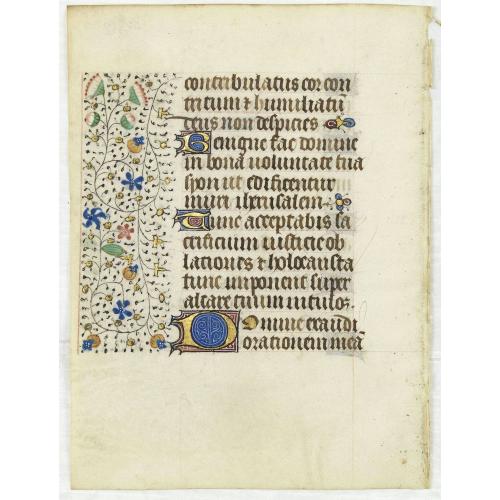 contribulatus cor con
tritum & humiliatū
deus non despicies
Benigne fac domine
in bona uoluntate tua
syon ut edificentur
muri iherusalem
Tunc acceptabis sa
crificium iusticie ob
lationes & holocausta
tunc imponent super
altare tuum uitulos.
Domine exaudi
orationem meā